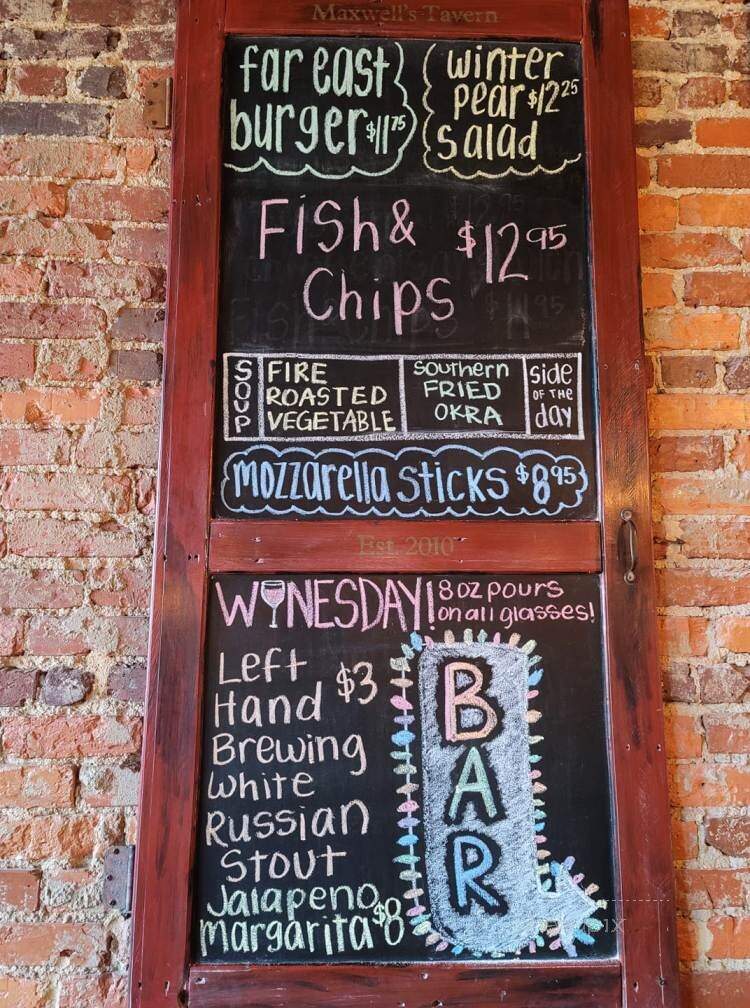 Maxwell's Tavern
far east
burger $11.75
winter
pear $12.25
salad
Fish &
Chips
$12.95
SOUP
FIRE
ROASTED
VEGETABLE
Southern
FRIED
OKRA
Side
OF THE
day
mozzarella sticks $8.95
Est. 2010
WINESDAY!
8 oz pours
on all glasses!
Left
Hand $3
Brewing
White
Russian
Stout
Jalapeno
margarita $8
BAR